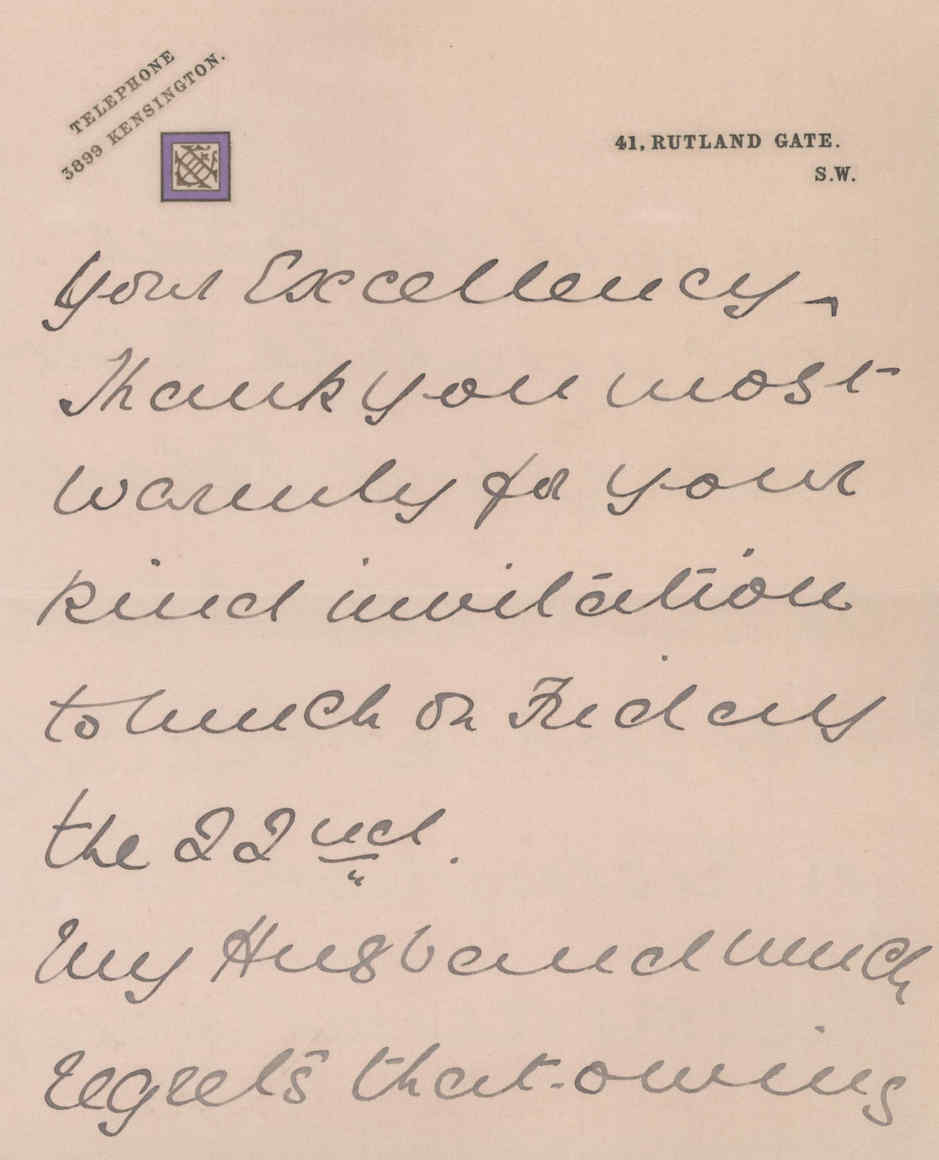 TELEPHONE
3899 KENSINGTON.
41, RUTLAND GATE.
S.W.
Your Excellency –
Thank you most
warmly for your
kind invitation
to lunch on Friday
the 22nd.
My Husband much
regrets that owing